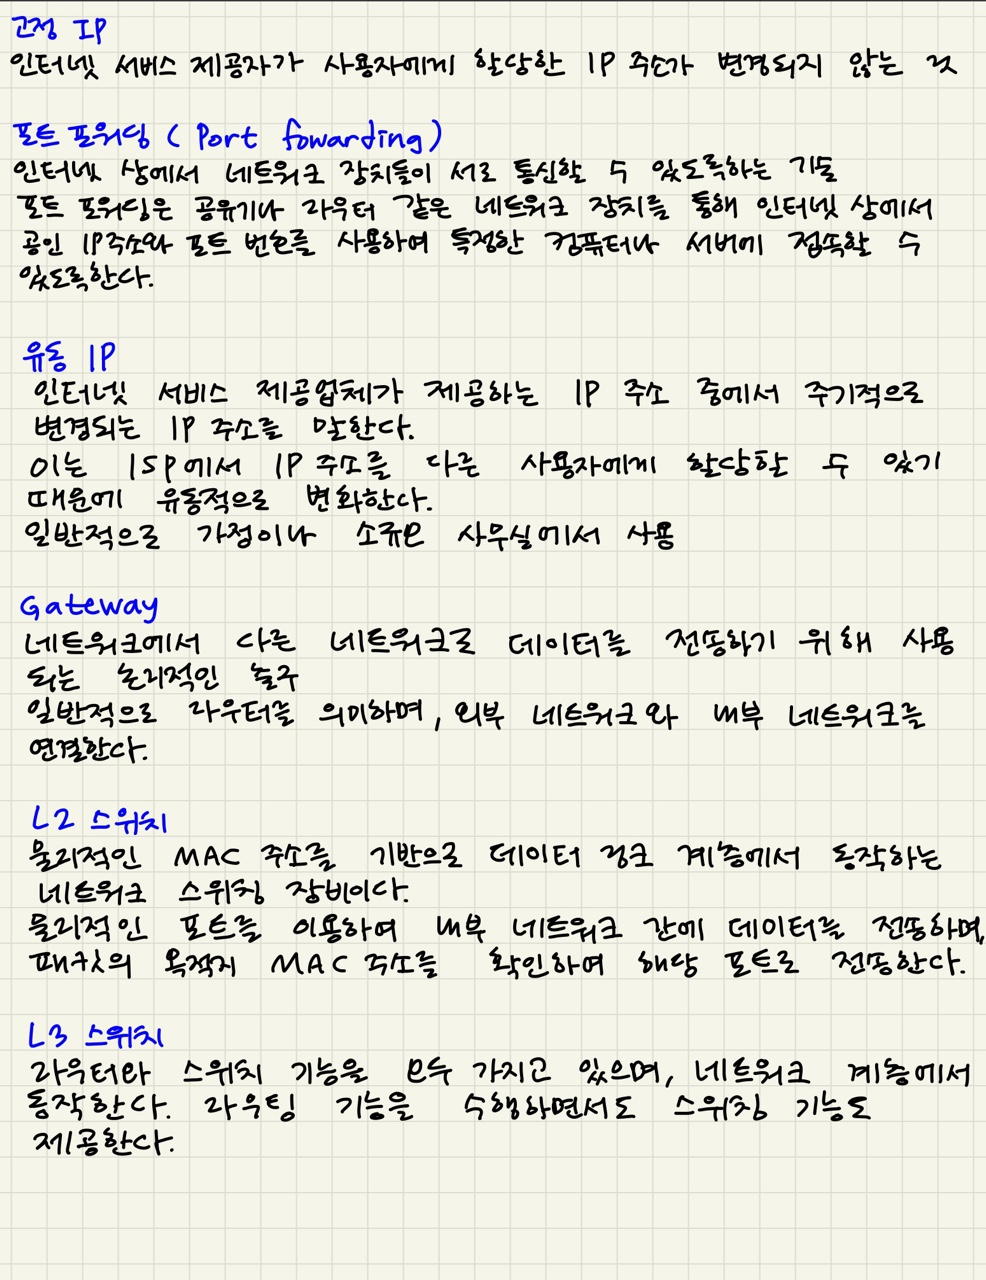 고정 IP
인터넷 서비스 제공자가 사용자에게 할당한 IP 주소가 변경되지 않는 것
포트 포워딩 ( Port fowarding )
인터넷 상에서 네트워크 장치들이 서로 통신할 수 있도록하는 기술
포트 포워딩은 공유기나 라우터 같은 네트워크 장치를 통해 인터넷 상에서
공인 IP주소와 포트 번호를 사용하여 특정한 컴퓨터나 서버에 접속할 수
있도록한다.
유동 IP
인터넷 서비스 제공업체가 제공하는 IP 주소 중에서 주기적으로
변경되는 IP 주소를 말한다.
이는 ISP에서 IP 주소를 다른 사용자에게 할당할 수 있기
때문에 유동적으로 변화한다.
일반적으로 가정이나 소규모 사무실에서 사용
Gateway
네트워크에서 다른 네트워크로 데이터를 전송하기 위해 사용
되는 논리적인 출구
일반적으로 라우터를 의미하며, 외부 네트워크와 내부 네트워크를
연결한다.
L2 스위치
물리적인 MAC 주소를 기반으로 데이터 링크 계층에서 동작하는
네트워크 스위칭 장비이다.
물리적인 포트를 이용하여 내부 네트워크 간에 데이터를 전송하며,
패킷의 목적지 MAC 주소를 확인하여 해당 포트로 전송한다.
L3 스위치
라우터와 스위치 기능을 모두 가지고 있으며, 네트워크 계층에서
동작한다. 라우팅 기능을 수행하면서도 스위칭 기능도
제공한다.